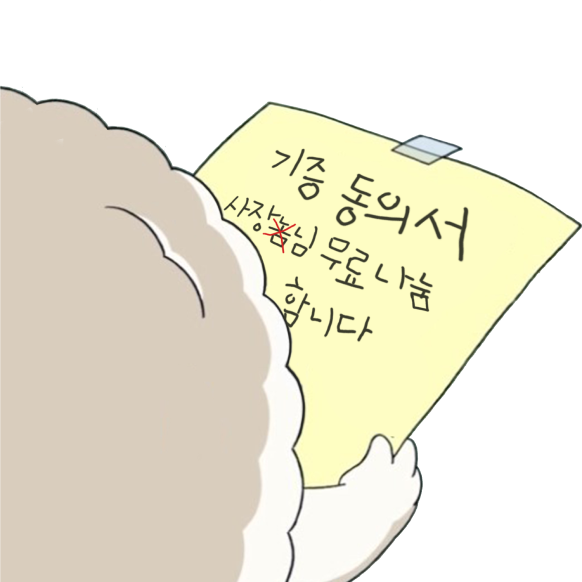 기증 동의서
사장놈님 무료 나눔
합니다